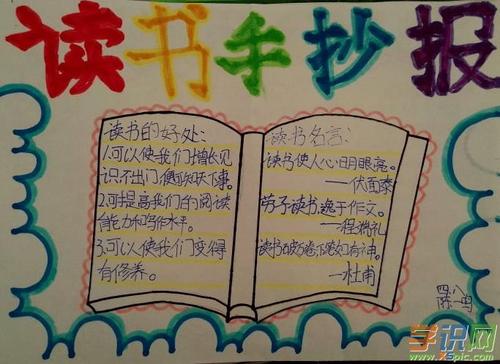 读书手抄报
读书的好处:
1.可以使我们增长见
识,不出门,便可知天下事。
2.可提高我们的阅读
能力和写作水平。
3.可以使我们变得
有修养。
读书名言:
读书使人心明眼亮。
——伏尔泰
劳于读书,逸于作文。
——程端礼
读书破万卷,下笔如有神。
——杜甫
四.八
学识网
www.XSpic.com